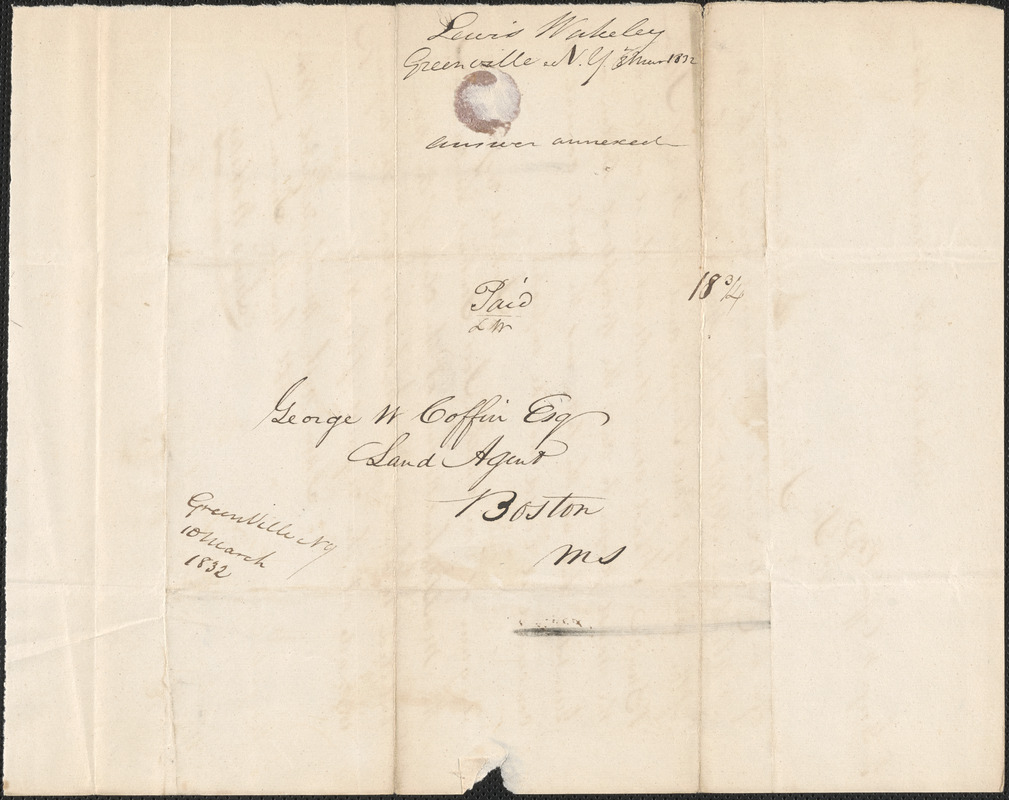 Lewis Wakeley
Greenville N.Y. 8 Mar 1832
answer annexed
Paid
LW
18 3/4
George W Coffin Esq
Land Agent
Boston
Ms
GreenVille NY
10 March
1832